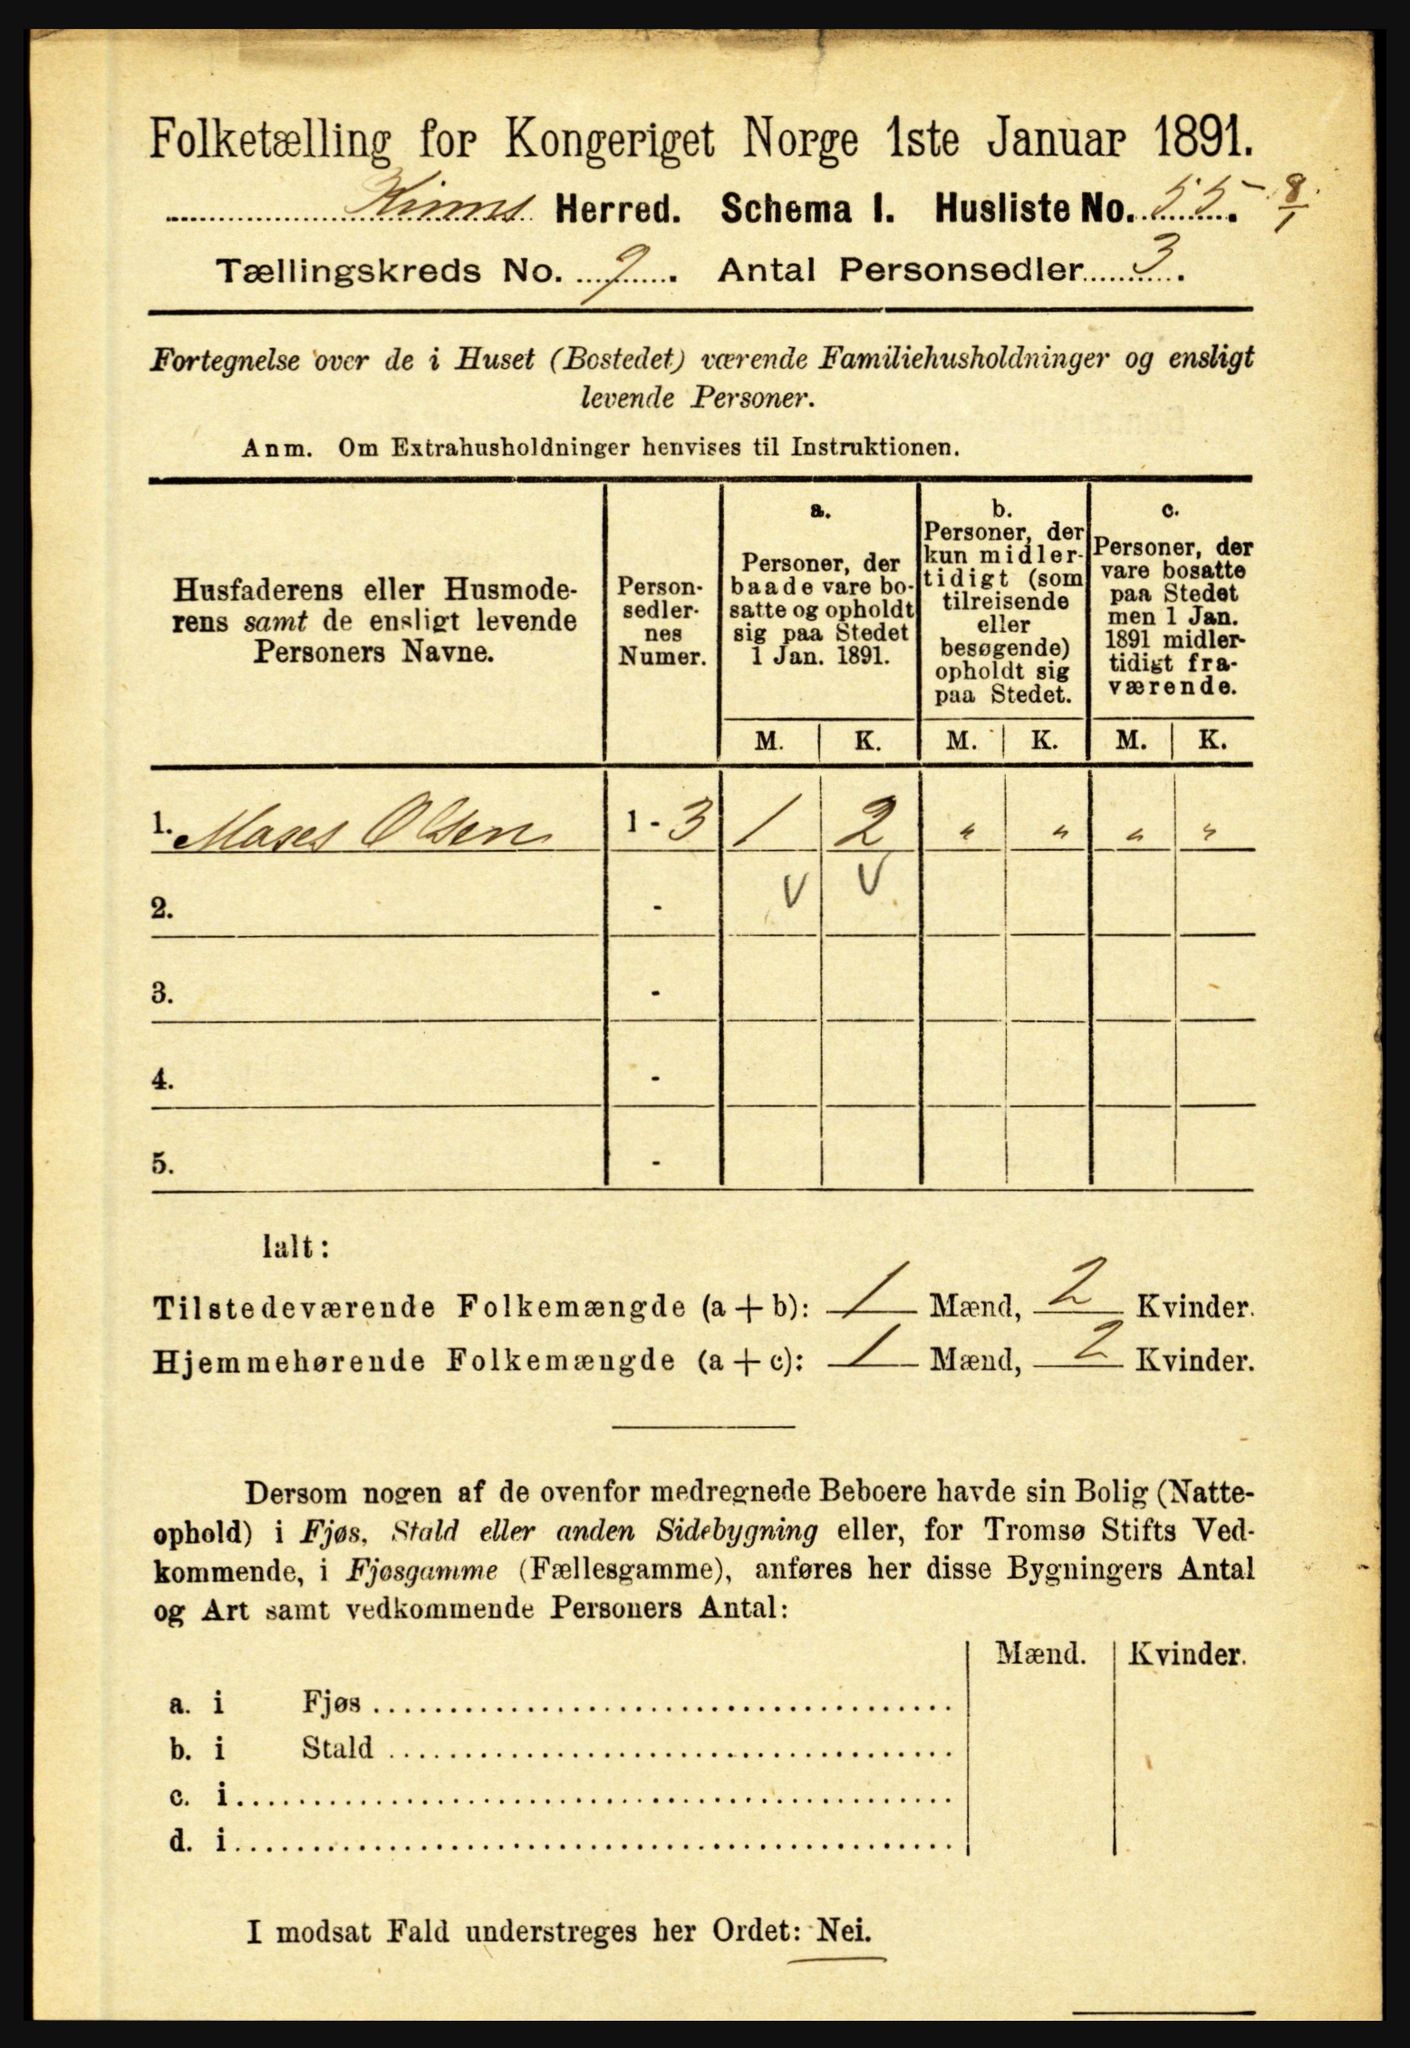 Folketælling for Kongeriget Norge 1ste Januar 1891.
Kinns Herred. Schema I. Husliste No. 55. 8/1
Tællingskreds No. 9. Antal Personsedler 3.
Fortegnelse over de i Huset (Bostedet) værende Familiehusholdninger og ensligt
levende Personer.
Anm. Om Extrahusholdninger henvises til Instruktionen.
Husfaderens eller Husmode-
rens samt de ensligt levende
Personers Navne.
Person-
sedler-
nes
Numer.
a.
Personer, der
baade vare bo-
satte og opholdt
sig paa Stedet
1 Jan. 1891.
b.
Personer, der
kun midler-
tidigt (som
tilreisende
eller
besøgende)
opholdt sig
paa Stedet.
c.
Personer, der
vare bosatte
paa Stedet
men 1 Jan.
1891 midler-
tidigt fra-
værende.
M. K. M. K. M. K.
1. Moses Olsen 1 - 3 1 2 " " " "
2. - V V
3. -
4. -
5. -
Ialt:
Tilstedeværende Folkemængde (a + b): 1 Mænd, 2 Kvinder.
Hjemmehørende Folkemængde (a + c): 1 Mænd, 2 Kvinder.
Dersom nogen af de ovenfor medregnede Beboere havde sin Bolig (Natte-
ophold) i Fjøs, Stald eller anden Sidebygning eller, for Tromsø Stifts Ved-
kommende, i Fjøsgamme (Fællesgamme), anføres her disse Bygningers Antal
og Art samt vedkommende Personers Antal:
Mænd. Kvinder.
a. i Fjøs
b. i Stald
c. i
d. i
I modsat Fald understreges her Ordet: Nei.